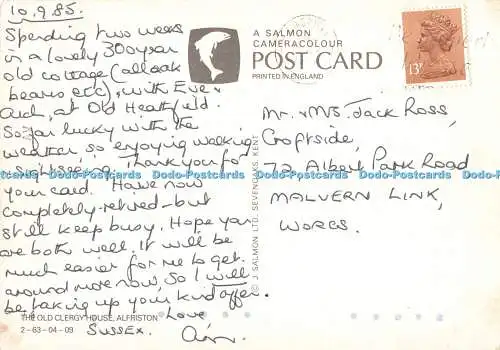 10.9.85.
Spending two weeks
in a lovely 300 year
old cottage (all oak
beams etc), with Eve &
at Old Heathfield.
So far lucky with the
weather so enjoying walking
& sightseeing. Thank you for
your card. Have now
completely retired - but
still keep busy. Hope you
are both well. It will be
much easier for me to get
around more now, so I will
be taking up your kind offer.
Love,
THE OLD CLERGY HOUSE, ALFRISTON
2-63-04-09 SUSSEX.
A SALMON
CAMERACOLOUR
POST CARD
PRINTED IN ENGLAND
© J. SALMON LTD., SEVENOAKS, KENT
13P
Mr. & Mrs. Jack Ross,
Croftside,
72 Albert Park Road
MALVERN LINK,
WORCS.
Dodo-Postcards Dodo-Postcards Dodo-Postcards Dodo-Postcards Dodo-Postcards Dodo-Postcards